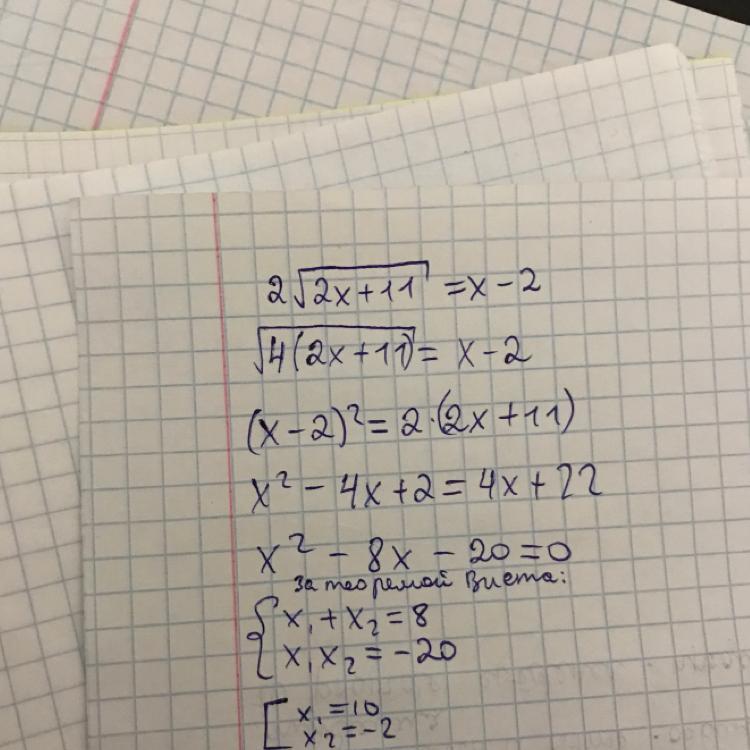 2√(2x+11) = x-2
√(4(2x+11)) = x-2
(x-2)² = 2·(2x+11)
x² - 4x + 2 = 4x + 22
x² - 8x - 20 = 0
За теоремой Виета:
{ x₁ + x₂ = 8
x₁ x₂ = -20
[ x₁ = 10
x₂ = -2